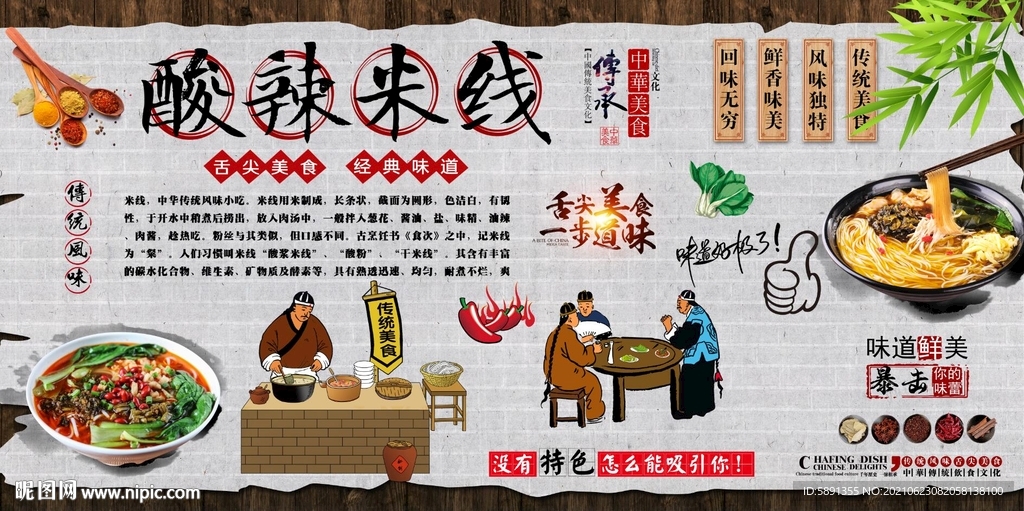 酸辣米线
舌尖美食 经典味道
傳統風味
米线，中华传统风味小吃。米线用米制成，长条状，截面为圆形，色洁白，有韧
性，于开水中稍煮后捞出，放入肉汤中，一般拌入葱花、酱油、盐、味精、油辣
、肉酱，趁热吃。粉丝与其类似，但口感不同。古烹饪书《食次》之中，记米线
为“粲”。人们习惯叫米线“酸浆米线”、“酸粉”、“干米线”。其含有丰富
的碳水化合物、维生素、矿物质及酵素等，具有熟透迅速、均匀，耐煮不烂，爽
【中國傳統美食文化】
傳承
中華美食
文化
中華美食
回味无穷
鲜香味美
风味独特
传统美食
舌尖美食
一步道味
A BITE OF CHINA
味道好极了!
传统美食
味道鲜美
暴击你的味蕾
没有特色怎么能吸引你!
CHAFING DISH
CHINESE DELIGHTS
传统风味舌尖美食
中華傳統飲食文化
昵图网 www.nipic.com
ID:5891355 NO:20210623082058138100